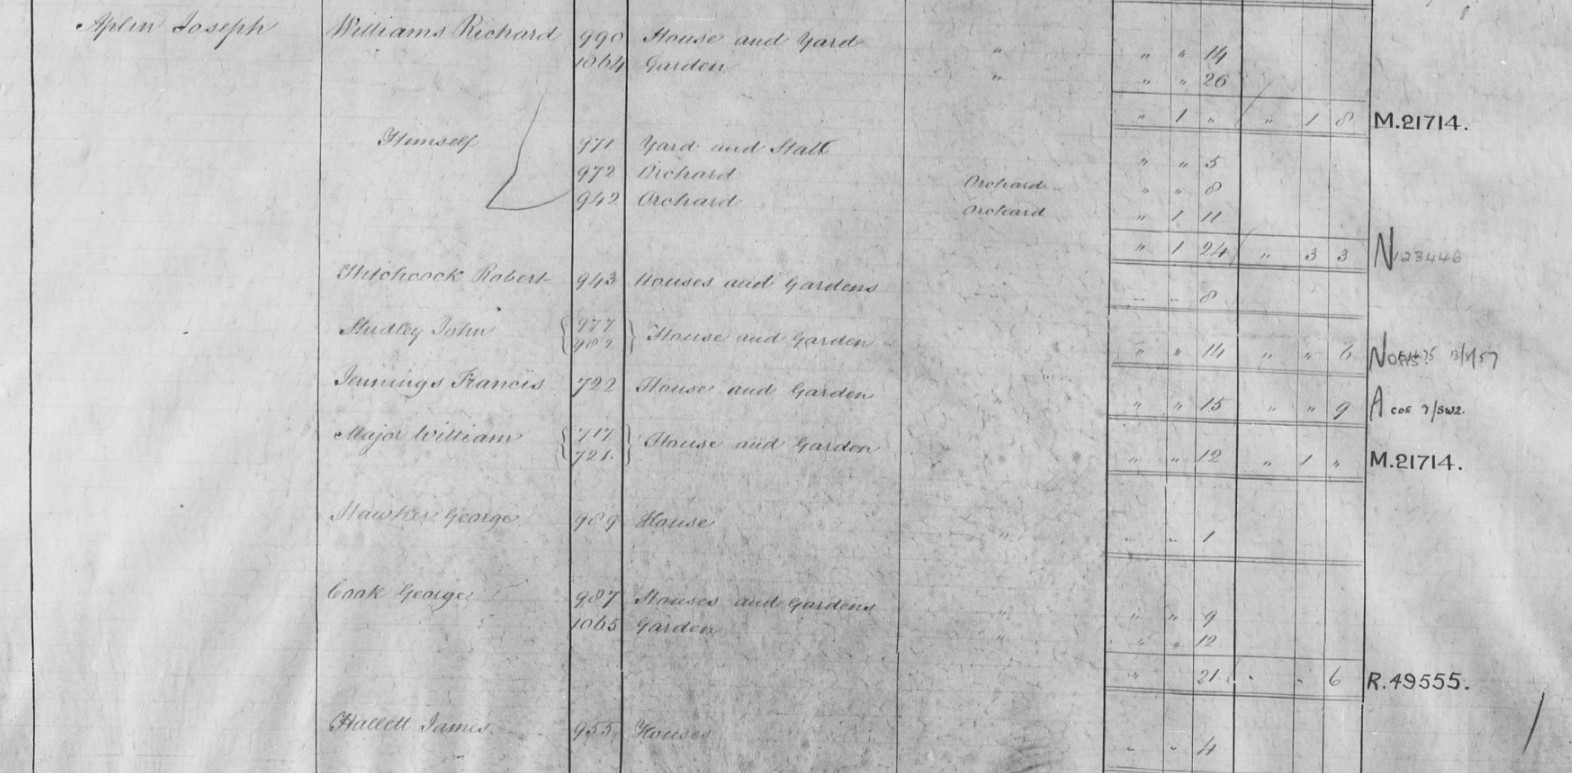 Aplin Joseph Williams Richard 990 House and Yard " " " 14
1064 Garden " " " 26
" 1 " " 1 8 M.21714.
Himself 971 Yard and Stall " " 5
972 Orchard Orchard " " 8
942 Orchard Orchard " 1 11
" 1 24 " 3 3 N 123446
Hitchcock Robert 943 Houses and Gardens " " " 8
Studley John { 977 982 } House and Garden " " 14 " " 6 N 13/8/57
Jennings Francis 722 House and Garden " " " 15 " " 9 A COE 7/SW2.
Major William { 717 721 } House and Garden " " 12 " 1 " M.21714.
Hawker George 989 House " " " 1
Cook George 987 Houses and Gardens " " " 9
1065 Garden " " " 12
" 21 " " 6 R.49555.
Hallett James 955 Houses " " 4